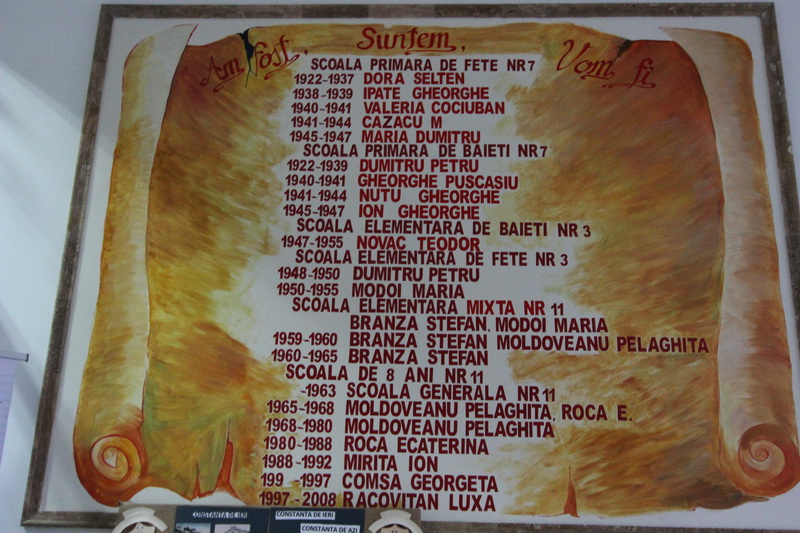 Am fost, Suntem, Vom fi
SCOALA PRIMARA DE FETE NR 7
1922-1937 DORA SELTEN
1938-1939 IPATE GHEORGHE
1940-1941 VALERIA COCIUBAN
1941-1944 CAZACU M
1945-1947 MARIA DUMITRU
SCOALA PRIMARA DE BAIETI NR 7
1922-1939 DUMITRU PETRU
1940-1941 GHEORGHE PUSCASIU
1941-1944 NUTU GHEORGHE
1945-1947 ION GHEORGHE
SCOALA ELEMENTARA DE BAIETI NR 3
1947-1955 NOVAC TEODOR
SCOALA ELEMENTARA DE FETE NR 3
1948-1950 DUMITRU PETRU
1950-1955 MODOI MARIA
SCOALA ELEMENTARA MIXTA NR 11
BRANZA STEFAN, MODOI MARIA
1959-1960 BRANZA STEFAN MOLDOVEANU PELAGHITA
1960-1965 BRANZA STEFAN
SCOALA DE 8 ANI NR 11
-1963 SCOALA GENERALA NR 11
1965-1968 MOLDOVEANU PELAGHITA, ROCA E.
1968-1980 MOLDOVEANU PELAGHITA
1980-1988 ROCA ECATERINA
1988-1992 MIRITA ION
199 -1997 COMSA GEORGETA
1997-2008 RACOVITAN LUXA
CONSTANTA DE IERI
CONSTANTA DE IERI
CONSTANTA DE AZI